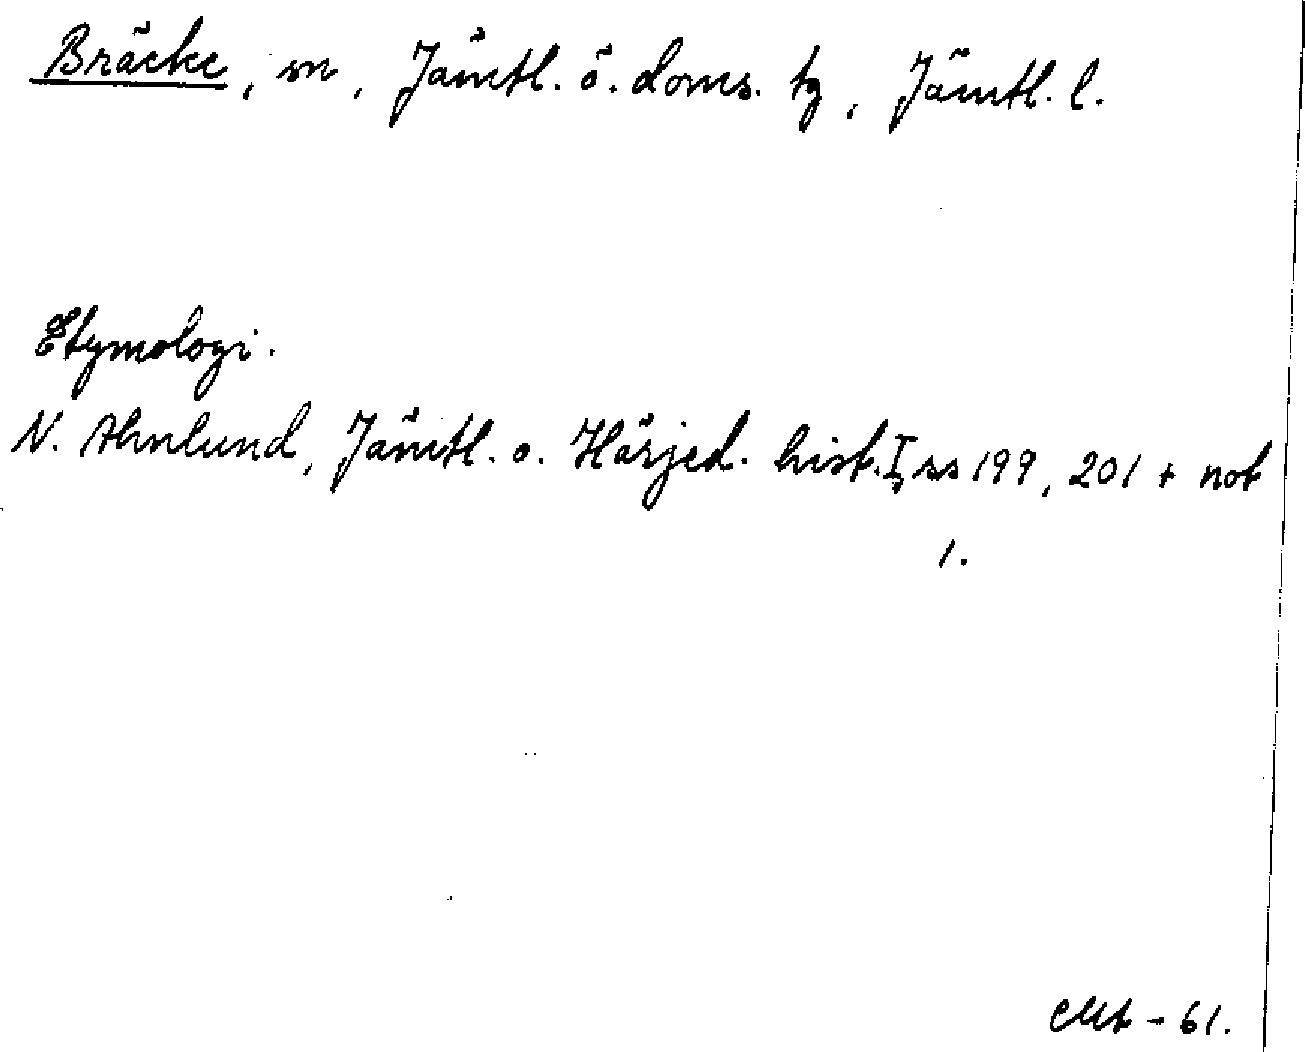 Bräcke, sn, Jämtl. ö. doms. tg, Jämtl. l.
Etymologi.
N. Ahnlund, Jämtl. o. Härjed. hist. I, ss 199, 201 + not
1.
-61.